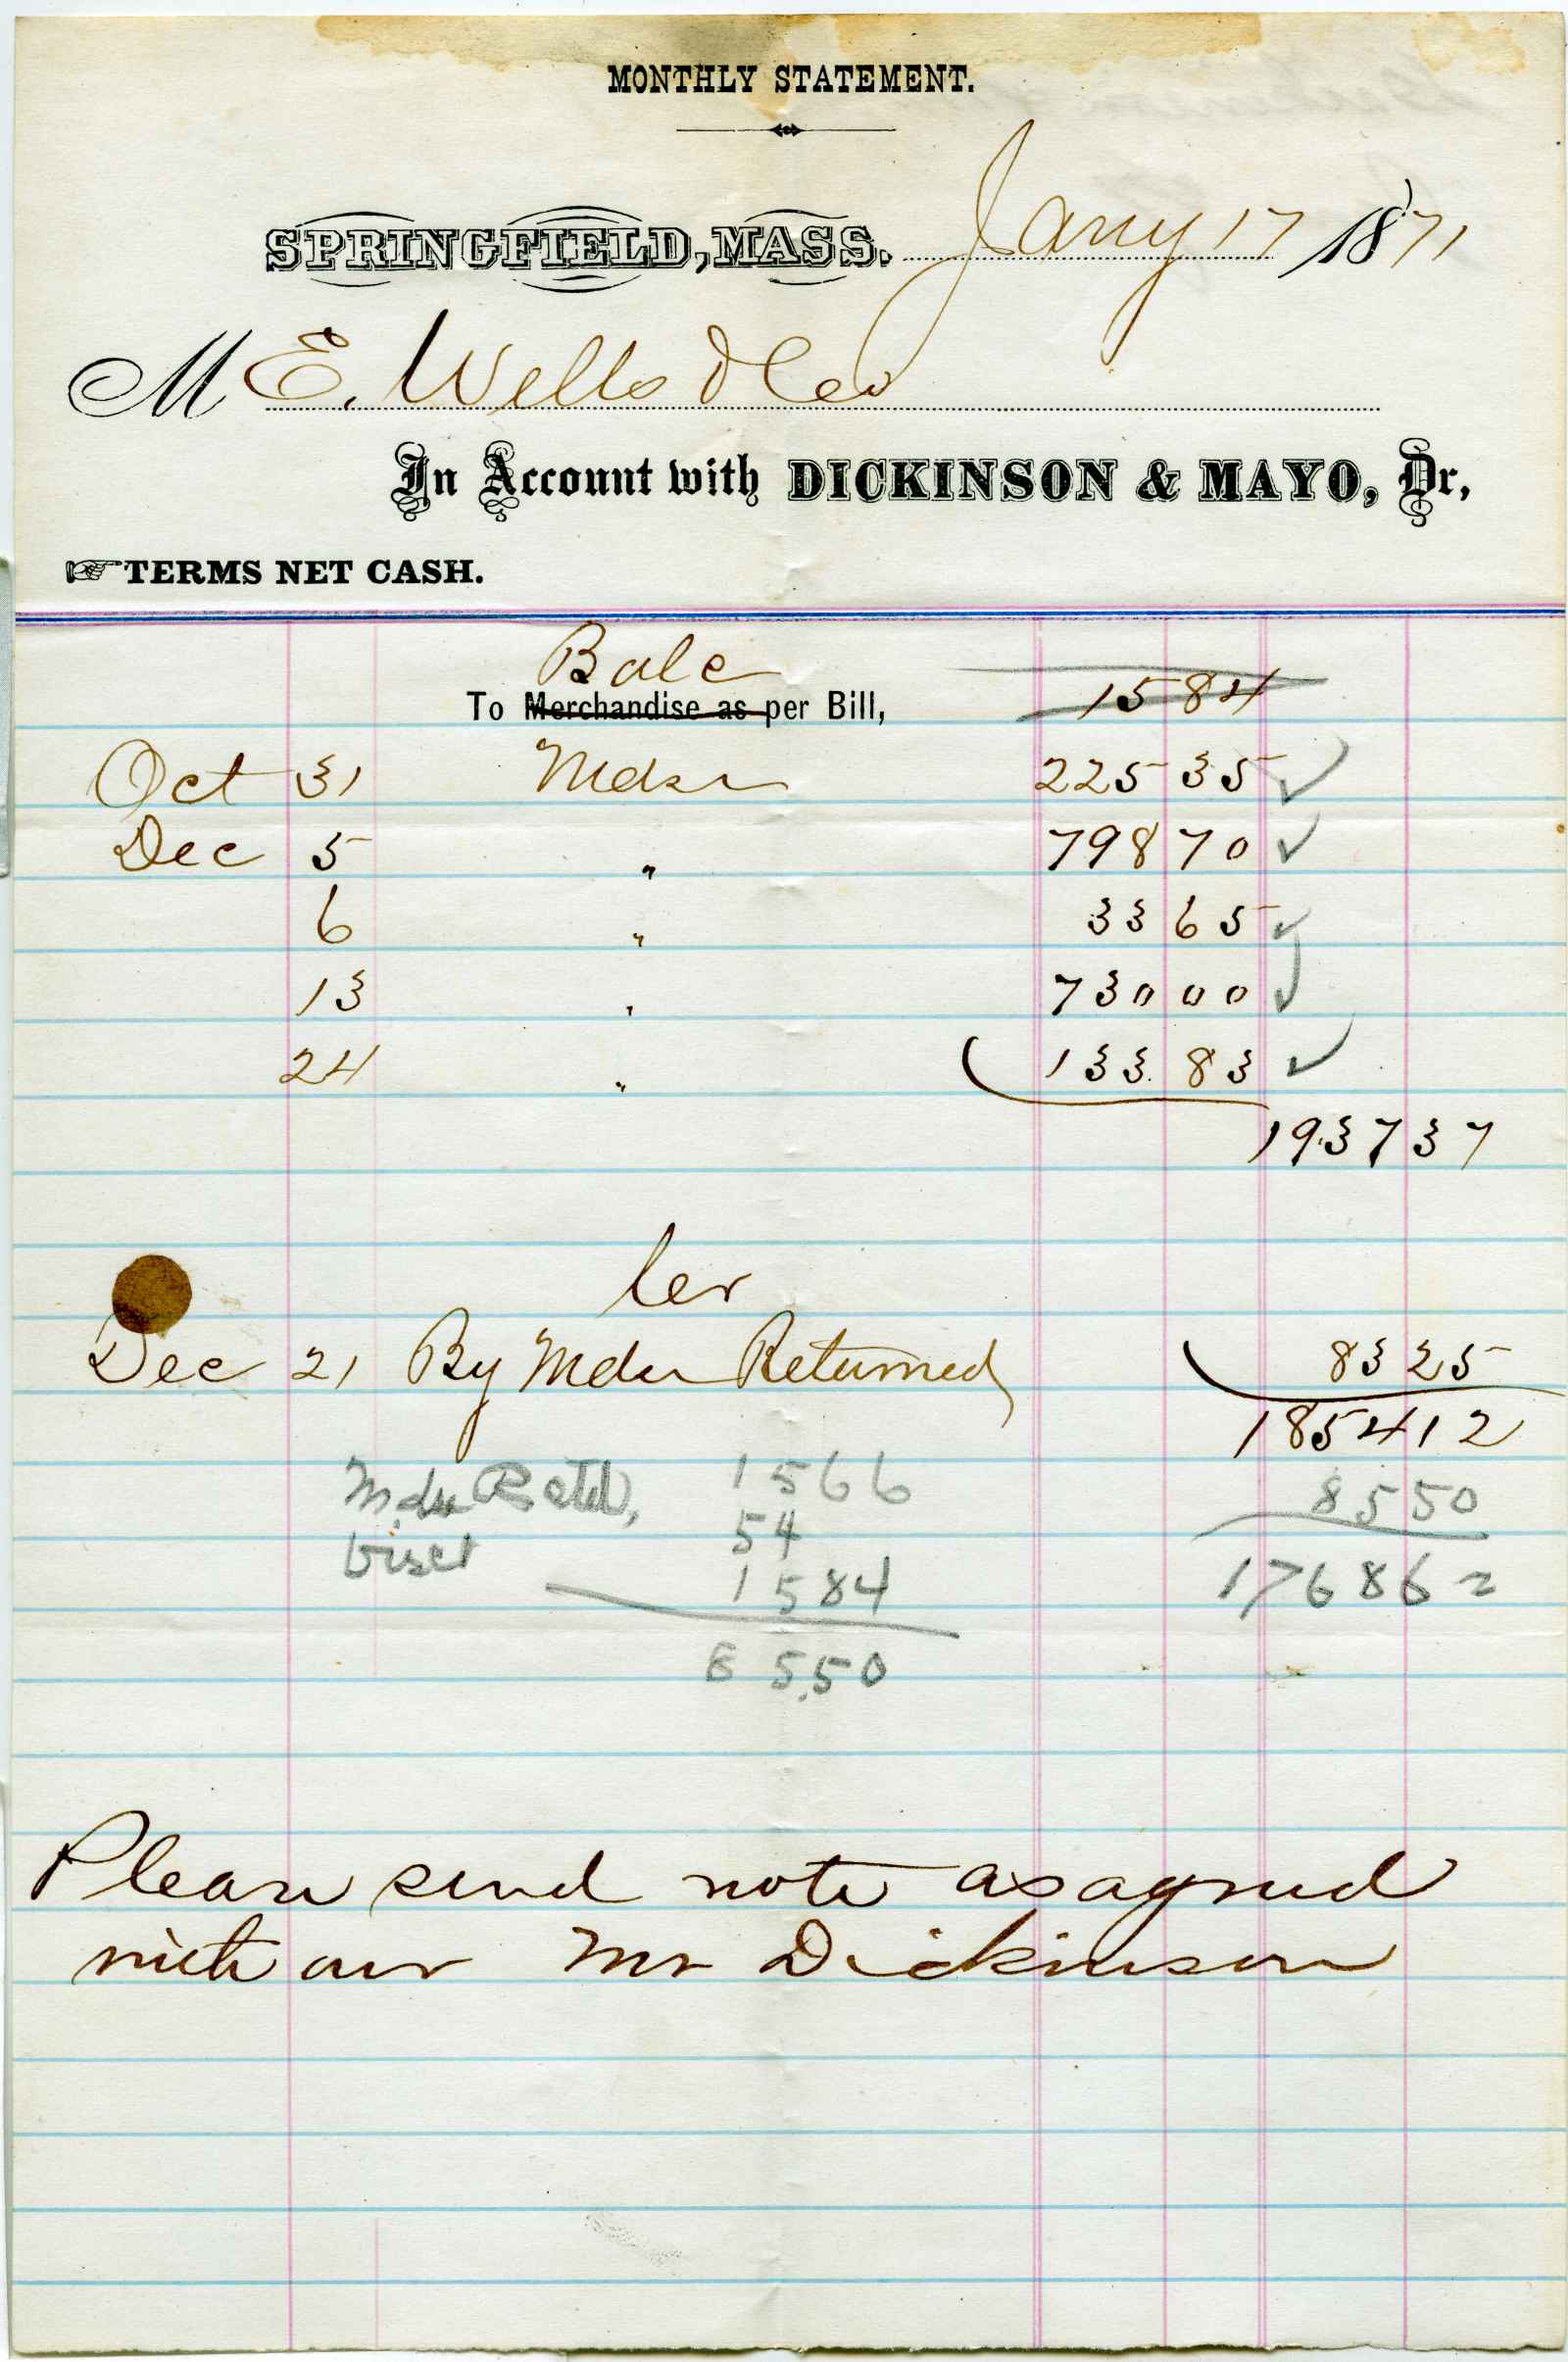 MONTHLY STATEMENT.
SPRINGFIELD, MASS. Jany 17 1871
M E. Wells & Co
In Account with DICKINSON & MAYO, Dr,
TERMS NET CASH.
Balc
To Merchandise as per Bill, 15 84
Oct 31 Mdse 225 35 ✓
Dec 5 " 798 70 ✓
6 " 33 65 ✓
13 " 730 00 ✓
24 " 133. 83 ✓
1937 37
Cr
Dec 21 By Mdse Returned 83 25
1854 12
Mdse Retd, 15 66 85 50
54
15 84 1768 62
85.50
Please send note as agreed
with our Mr Dickinson